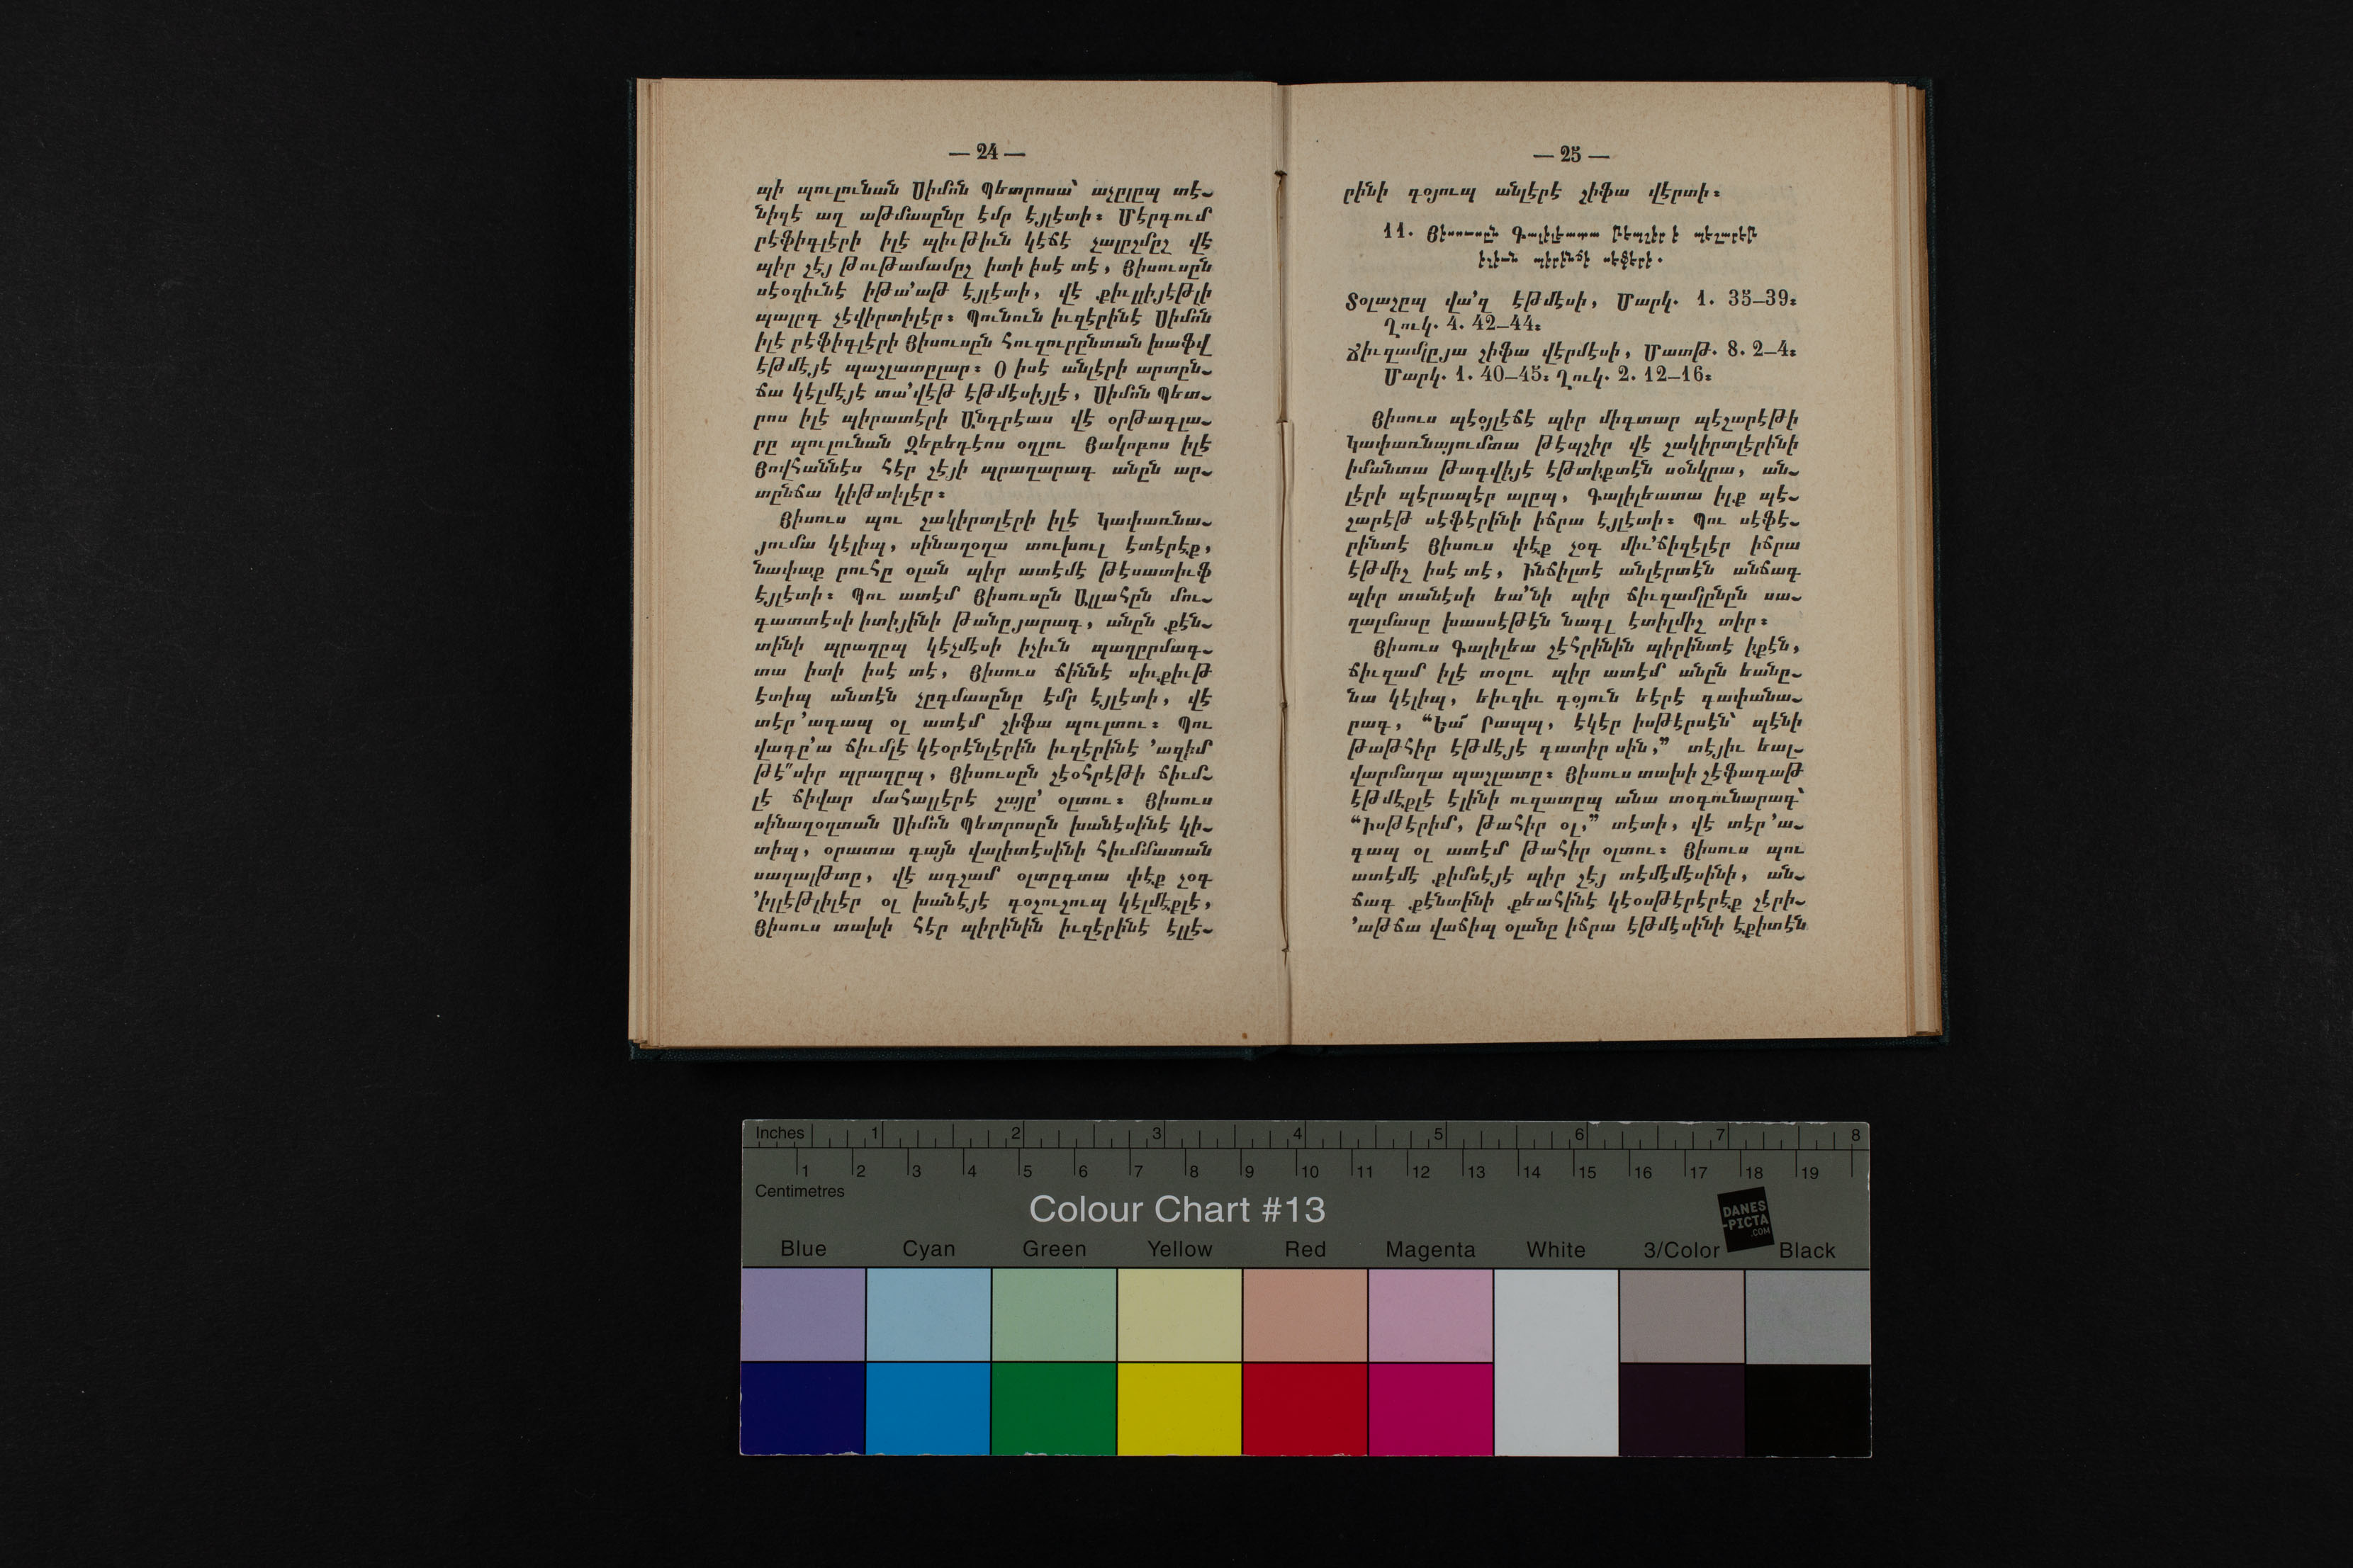 — 24 —
պի պուլունան Սիմօն Պետրոսա՝ աչըլըպ տէ֊
նիզէ աղ աթմասընը էմր էյլէտի։ Մէրդում
րէֆիգլէրի իլէ պիւթիւն կէճէ չալըշմըշ վէ
պիր շէյ թութամամըշ իտի իսէ տէ, Յիսուսըն
սէօզիւնէ իթա՚աթ էյլէտի, վէ քիւլլիյէթլի
պալըգ չէվիրտիլէր։ Պունուն իւզէրինէ Սիմօն
իլէ րէֆիգլէրի Յիսուսըն հուզուրընտան խաֆվ
էթմէյէ պաշլատըլար։ Օ իսէ անլէրի արտըն֊
ճա կէլմէյէ տա՚վէթ էթմէսիյլէ, Սիմօն Պետ֊
րոս իլէ պիրատէրի Անդրէաս վէ օրթագլա֊
րը պուլունան Զեբեդէոս օղլու Յակոբոս իլէ
Յովհաննէս հէր շէյի պրաղարագ անըն ար֊
տընճա կիթտիլէր։
Յիսուս պու շակիրտլէրի իլէ Կափառնա֊
յումա կէլիպ, սինաղօղա տուխուլ էտէրէք,
նափաք րուհը օլան պիր ատէմէ թէսատիւֆ
էյլէտի։ Պու ատէմ Յիսուսըն Ալլահըն մու֊
գատտէսի իտիյինի թանըյարագ, անըն քէն֊
տինի պրաղըպ կէչմէսի իչիւն պաղըրմագ֊
տա իտի իսէ տէ, Յիսուս ճիննէ սիւքիւթ
էտիպ անտէն չըգմասընը էմր էյլէտի, վէ
տէր ՚ագապ օլ ատէմ շիֆա պույտու։ Պու
վագը՚ա ճիւմլէ կէօրէնլէրին իւզէրինէ ՚ազիմ
թէ՜սիր պրաղըպ, Յիսուսըն շէօհրէթի ճիւմ֊
լէ ճիվար մահալլէրէ շայը՚ օլտու։ Յիսուս
սինաղօղտան Սիմօն Պետրոսըն խանէսինէ կի֊
տիպ, օրատա գայն վալիտէսինի հիւմմատան
սաղալթտը, վէ ագշամ օլտըգտա փէք չօգ
՚իլլէթլիլէր օլ խանէյէ գօշուշուպ կէլմէքլէ,
Յիսուս տախի հէր պիրինին իւզէրինէ էլլէ֊
— 25 —
րինի գօյուպ անլէրէ շիֆա վէրտի։
11. Յիսուսըն Գալիլեատա թեպշիր է պեշարեթ
իչիւն պիրինճի սեֆերի.
Տօլաշըպ վա՚զ էթմէսի, Մարկ. 1. 35–39։
Ղուկ. 4. 42–44։
Ճիւզամլըյա շիֆա վէրմէսի, Մատթ. 8. 2–4։
Մարկ. 1. 40–45։ Ղուկ. 2. 12–16։
Յիսուս պէօյլէճէ պիր միգտար պէշարէթի
Կափառնայումտա թէպշիր վէ շակիրտլէրինի
իմանտա թագվիյէ էթտիքտէն սօնկրա, ան֊
լէրի պէրապէր ալըպ, Գալիլեատա իլք պէ֊
շարէթ սէֆէրինի իճրա էյլէտի։ Պու սէֆէ֊
րինտէ Յիսուս փէք չօգ միւ՚ճիզէլէր իճրա
էթմիշ իսէ տէ, Ինճիլտէ անլէրտէն անճագ
պիր տանէսի եա՚նի պիր ճիւզամլընըն սա֊
ղալմասը խասսէթէն նագլ էտիլմիշ տիր։
Յիսուս Գալիլեա շէհրինին պիրինտէ իքէն,
ճիւզամ իլէ տօլու պիր ատէմ անըն եանը֊
նա կէլիպ, եիւզիւ գօյուն եէրէ գափանա֊
րագ, “Եա՜ Րապպ, էկէր իսթէրսէն՝ պէնի
թաթհիր էթմէյէ գատիր սին,” տէյիւ եալ֊
վարմաղա պաշլատը։ Յիսուս տախի շէֆագաթ
էթմէքլէ էլինի ուզատըպ անա տօգունարագ՝
“Իսթէրիմ, թահիր օլ,” տէտի, վէ տէր ՚ա֊
գապ օլ ատէմ թահիր օլտու։ Յիսուս պու
ատէմէ քիմսէյէ պիր շէյ տէմէմէսինի, ան֊
ճագ քէնտինի քեահինէ կէօսթէրէրէք շէրի֊
՚աթճա վաճիպ օլանը իճրա էթմէսինի էքիտէն
Inches 1 2 3 4 5 6 7 8
1 2 3 4 5 6 7 8 9 10 11 12 13 14 15 16 17 18 19
Centimetres
Colour Chart #13
DANES
-PICTA
.COM
Blue Cyan Green Yellow Red Magenta White 3/Color Black